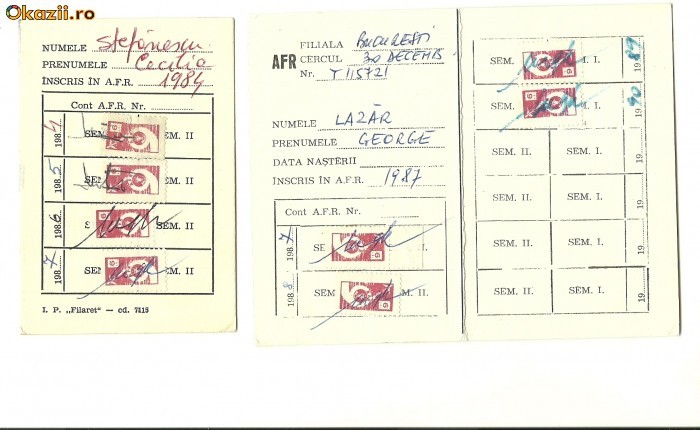 Okazii.ro
NUMELE Ștefănescu
PRENUMELE Cecilia
ÎNSCRIS ÎN A.F.R. 1984
Cont A.F.R. Nr.
1984 SEM SEM. II
1985 SEM
1986 S SEM. II
1987 SEM SEM. II
I. P. „Filaret" — cd. 7215
AFR
FILIALA BUCUREȘTI
CERCUL 30 DECEMB
Nr. T 115721
NUMELE LAZĂR
PRENUMELE GEORGE
DATA NAȘTERII
ÎNSCRIS ÎN A.F.R. 1987
Cont A.F.R. Nr.
1987 SE I.
1988 SEM M. II.
SEM. M. I. 1989
SEM. I. 1990
SEM. II. SEM. I. 19
SEM. II. SEM. I. 19
SEM. II. SEM. I. 19
SEM. II. SEM. I. 19